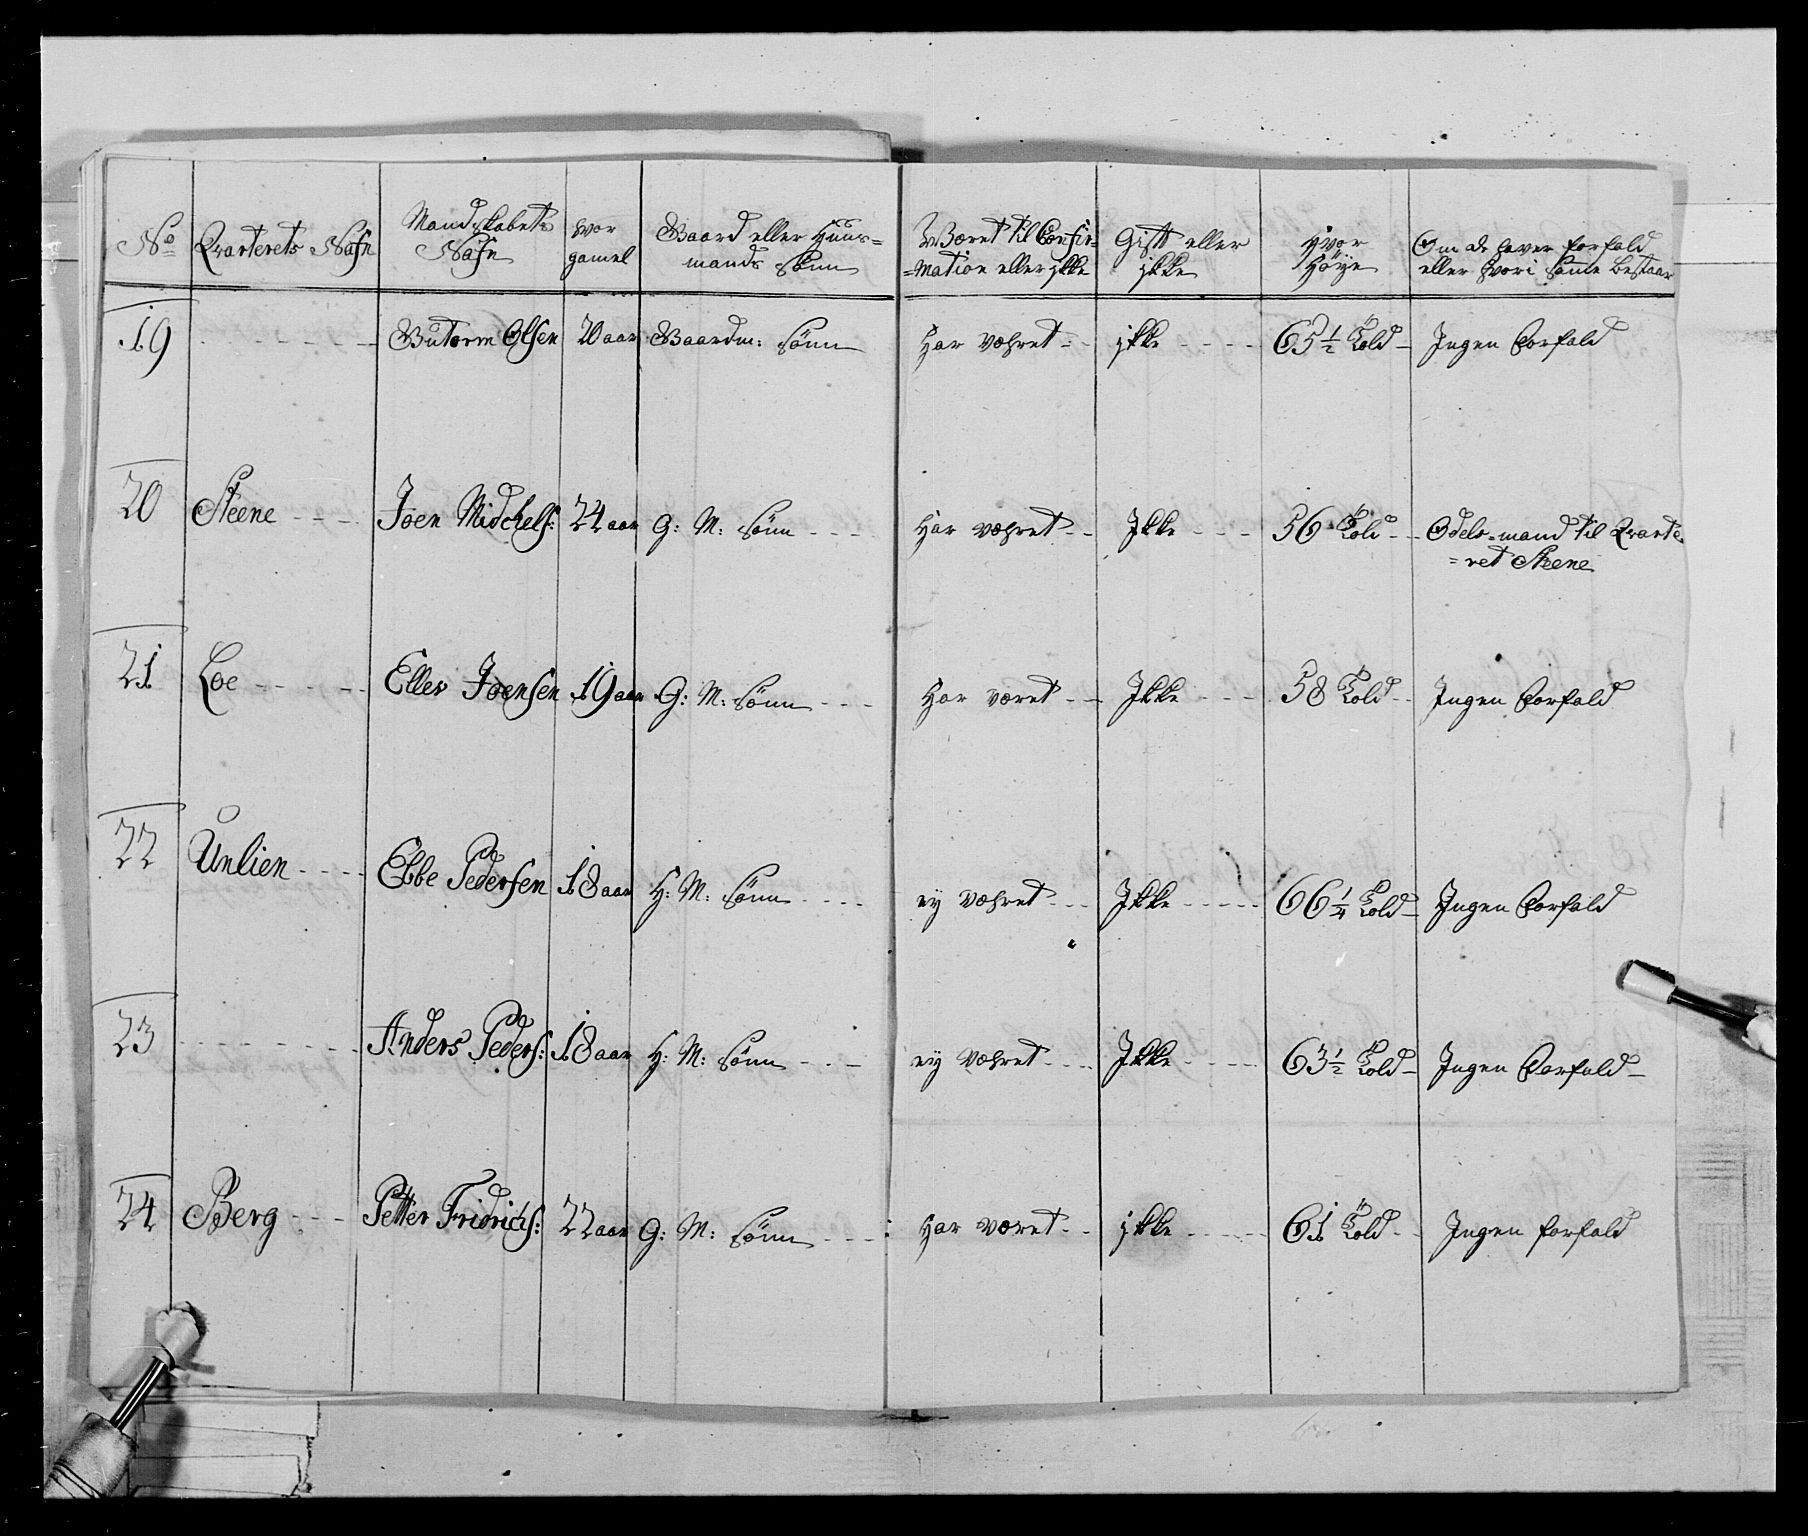 No Qvarterets Nafn Mandskabets Nafn hvor gamel Gaard eller Huusmands Sønn Været til Confir=mation eller ikke Gift eller ikke Hvor Høye Om de haver forfald eller hvori samme bestaar
19 - - - Gutorm Olsen 20 aar Gaardm: Sønn Har væhret - ikke - - - 65 1/2 Told - Ingen Forfald
20 Steene - - - Joen Midchels: 24 aar G: M: Sønn - - - Har væhret - - Ikke - - - 56 Told - - Odels-mand til Qvarte
=ret Steene
21 Loe - - - - Ellev Joensen 19 aar G: M: Sønn - - - Har været - - Ikke - - - 58 Told - - Ingen Forfald
22 Unlien - - - - Ebbe Pedersen 18 aar H: M: Sønn - - - - ey væhret - - - Ikke - - - - - 66 1/4 Told - Ingen Forfald
23 - - - - - - Anders Peders: 18 aar H: M: Sønn - - - ey væhret - - - - Ikke - - - - - 63 1/2 Told - Ingen Forfald -
24 Berg - - - Petter Fridrichs: 22 aar G: M: Sønn - - - : Har været - - ikke - - - - - 61 Told - - Ingen forfald